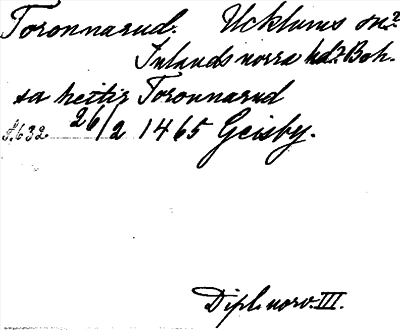 Toronnarud. Ucklums sn?
Inlands norra hd? Boh.
sa heitir Toronnarud
s. 632 26/2 1465 Geisby.
Dipl. norv. III.